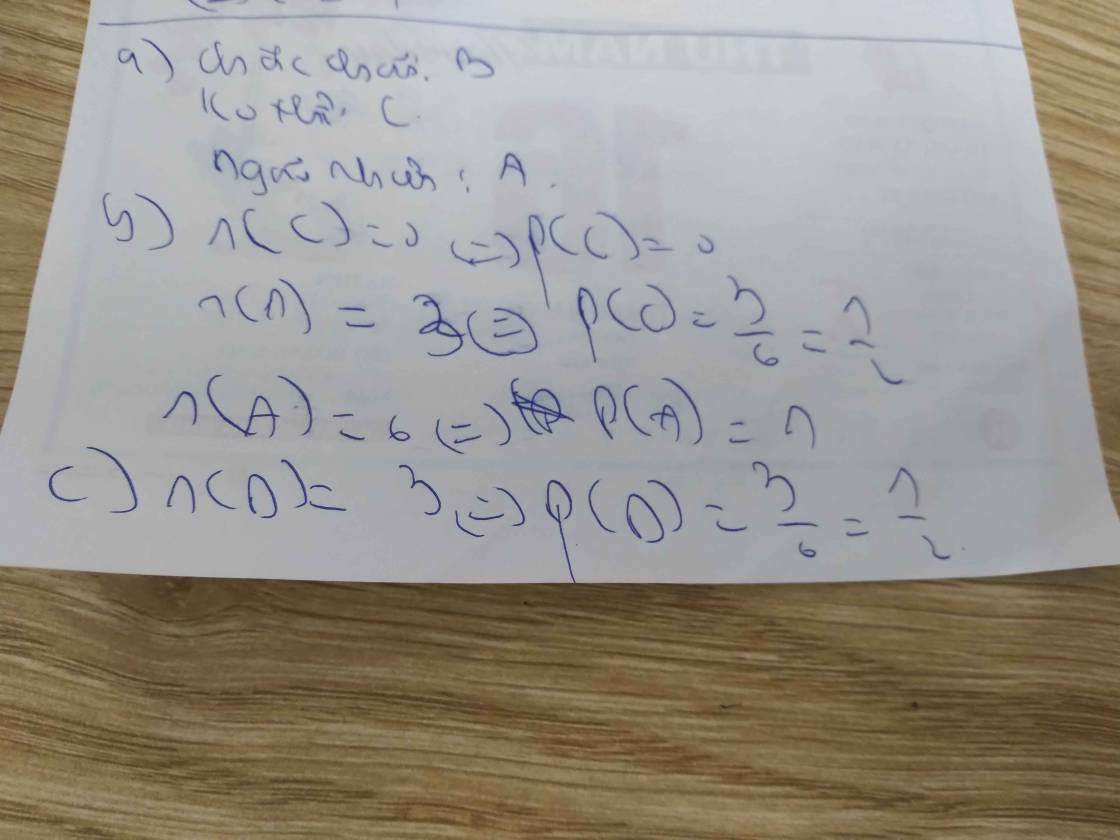 a) chắc chắn: B
Ko thể: C
ngẫu nhiên: A.
b) n(C) = 0 (=) P(C) = 0
n(D) = 3 (=) P(D) = 3/6 = 1/2
n(A) = 6 (=) P(A) = 1
c) n(D) = 3 (=) P(D) = 3/6 = 1/2.
THỨ NĂM
16